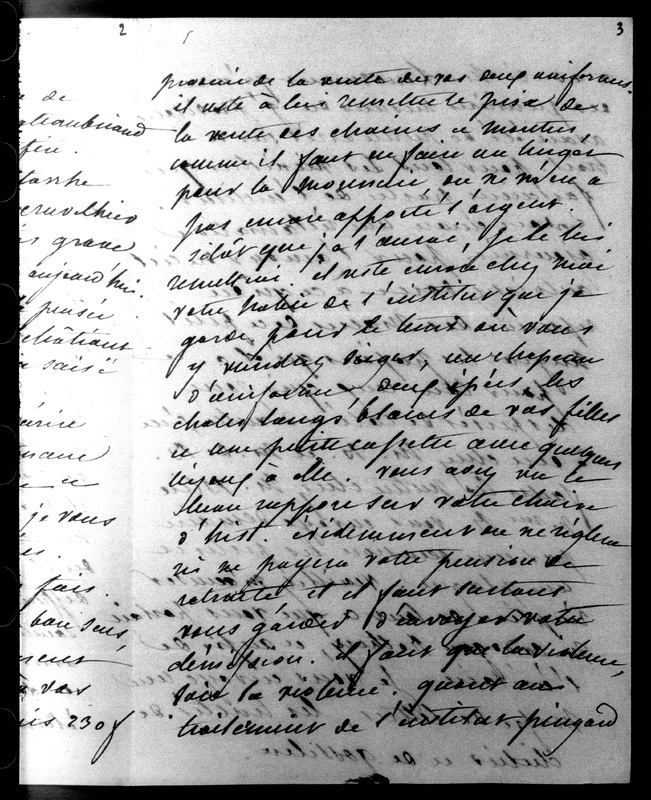 2
3
de
Chateaubriand
feu.
tasche
grave
aujourd'hui.
pensée
châtiant
saisi
je vous
fais.
bon sens,
vos
230 f
provenu de la vente de vos deux uniformes.
il reste à lui remettre le prix de
la vente des chaines et montres,
comme il faut en faire un lingot
pour la monnaie, on ne m'en a
pas encore apporté l'argent.
sitôt que je l'aurai, je le lui
remettrai. il reste encore chez moi
votre habit de l'institut que je
garde pour le tems où vous
y viendrez siéger, un chapeau
d'uniforme, deux épées, les
chales longs, blancs de vos filles
et une petite cassette avec quelques
bijoux à elle. vous avez vu le
beau rapport sur votre chaire
d'hist. évidemment on ne règlera
ni ne payera votre pension de
retraite et il faut surtout
vous garder d'envoyer votre
démission. il faut que la violence,
soit la violence. quant au
traitement de l'institut pingard